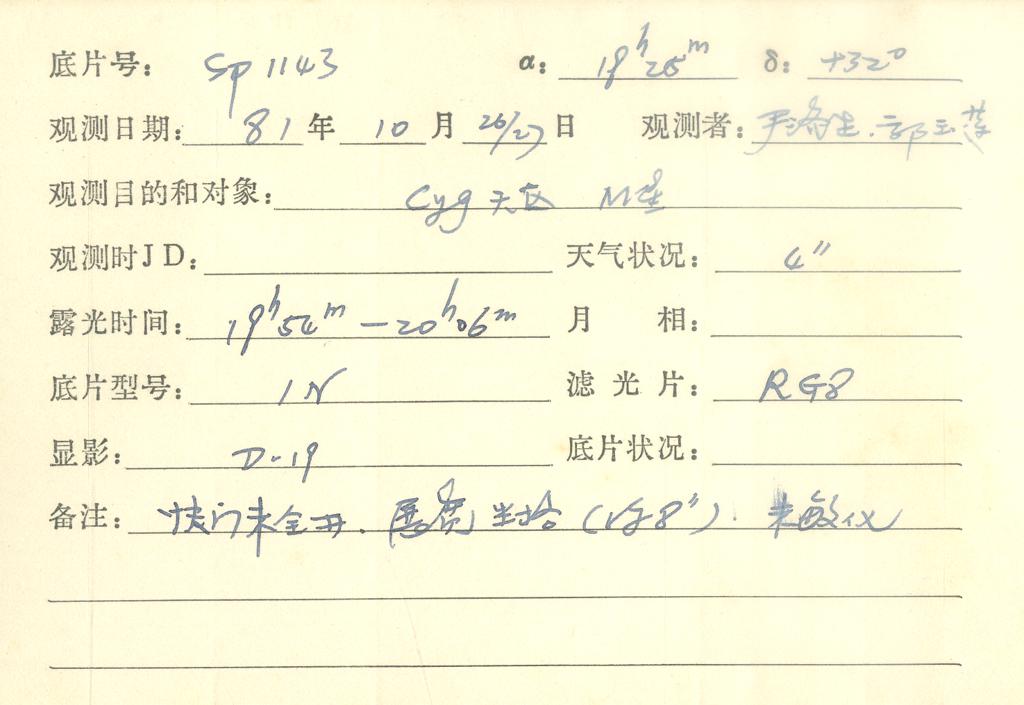 底片号: Sp 1143 α: 19ʰ 25ᵐ δ: +32°
观测日期: 81 年 10 月 26/27 日 观测者:
观测目的和对象: Cyg 天区 M星
观测时JD: 天气状况: 4"
露光时间: 19ʰ54ᵐ—20ʰ06ᵐ 月 相:
底片型号: 1N 滤光片: RG8
显影: D-19 底片状况:
备注: 快门未全开. 8') 朱敏仪